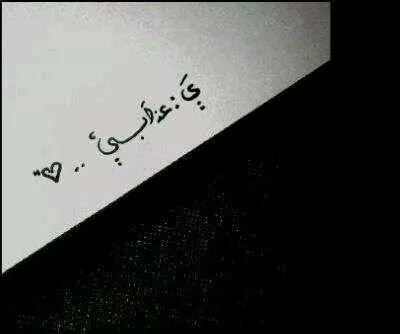 يَ : عذَابـيُ .. "♡